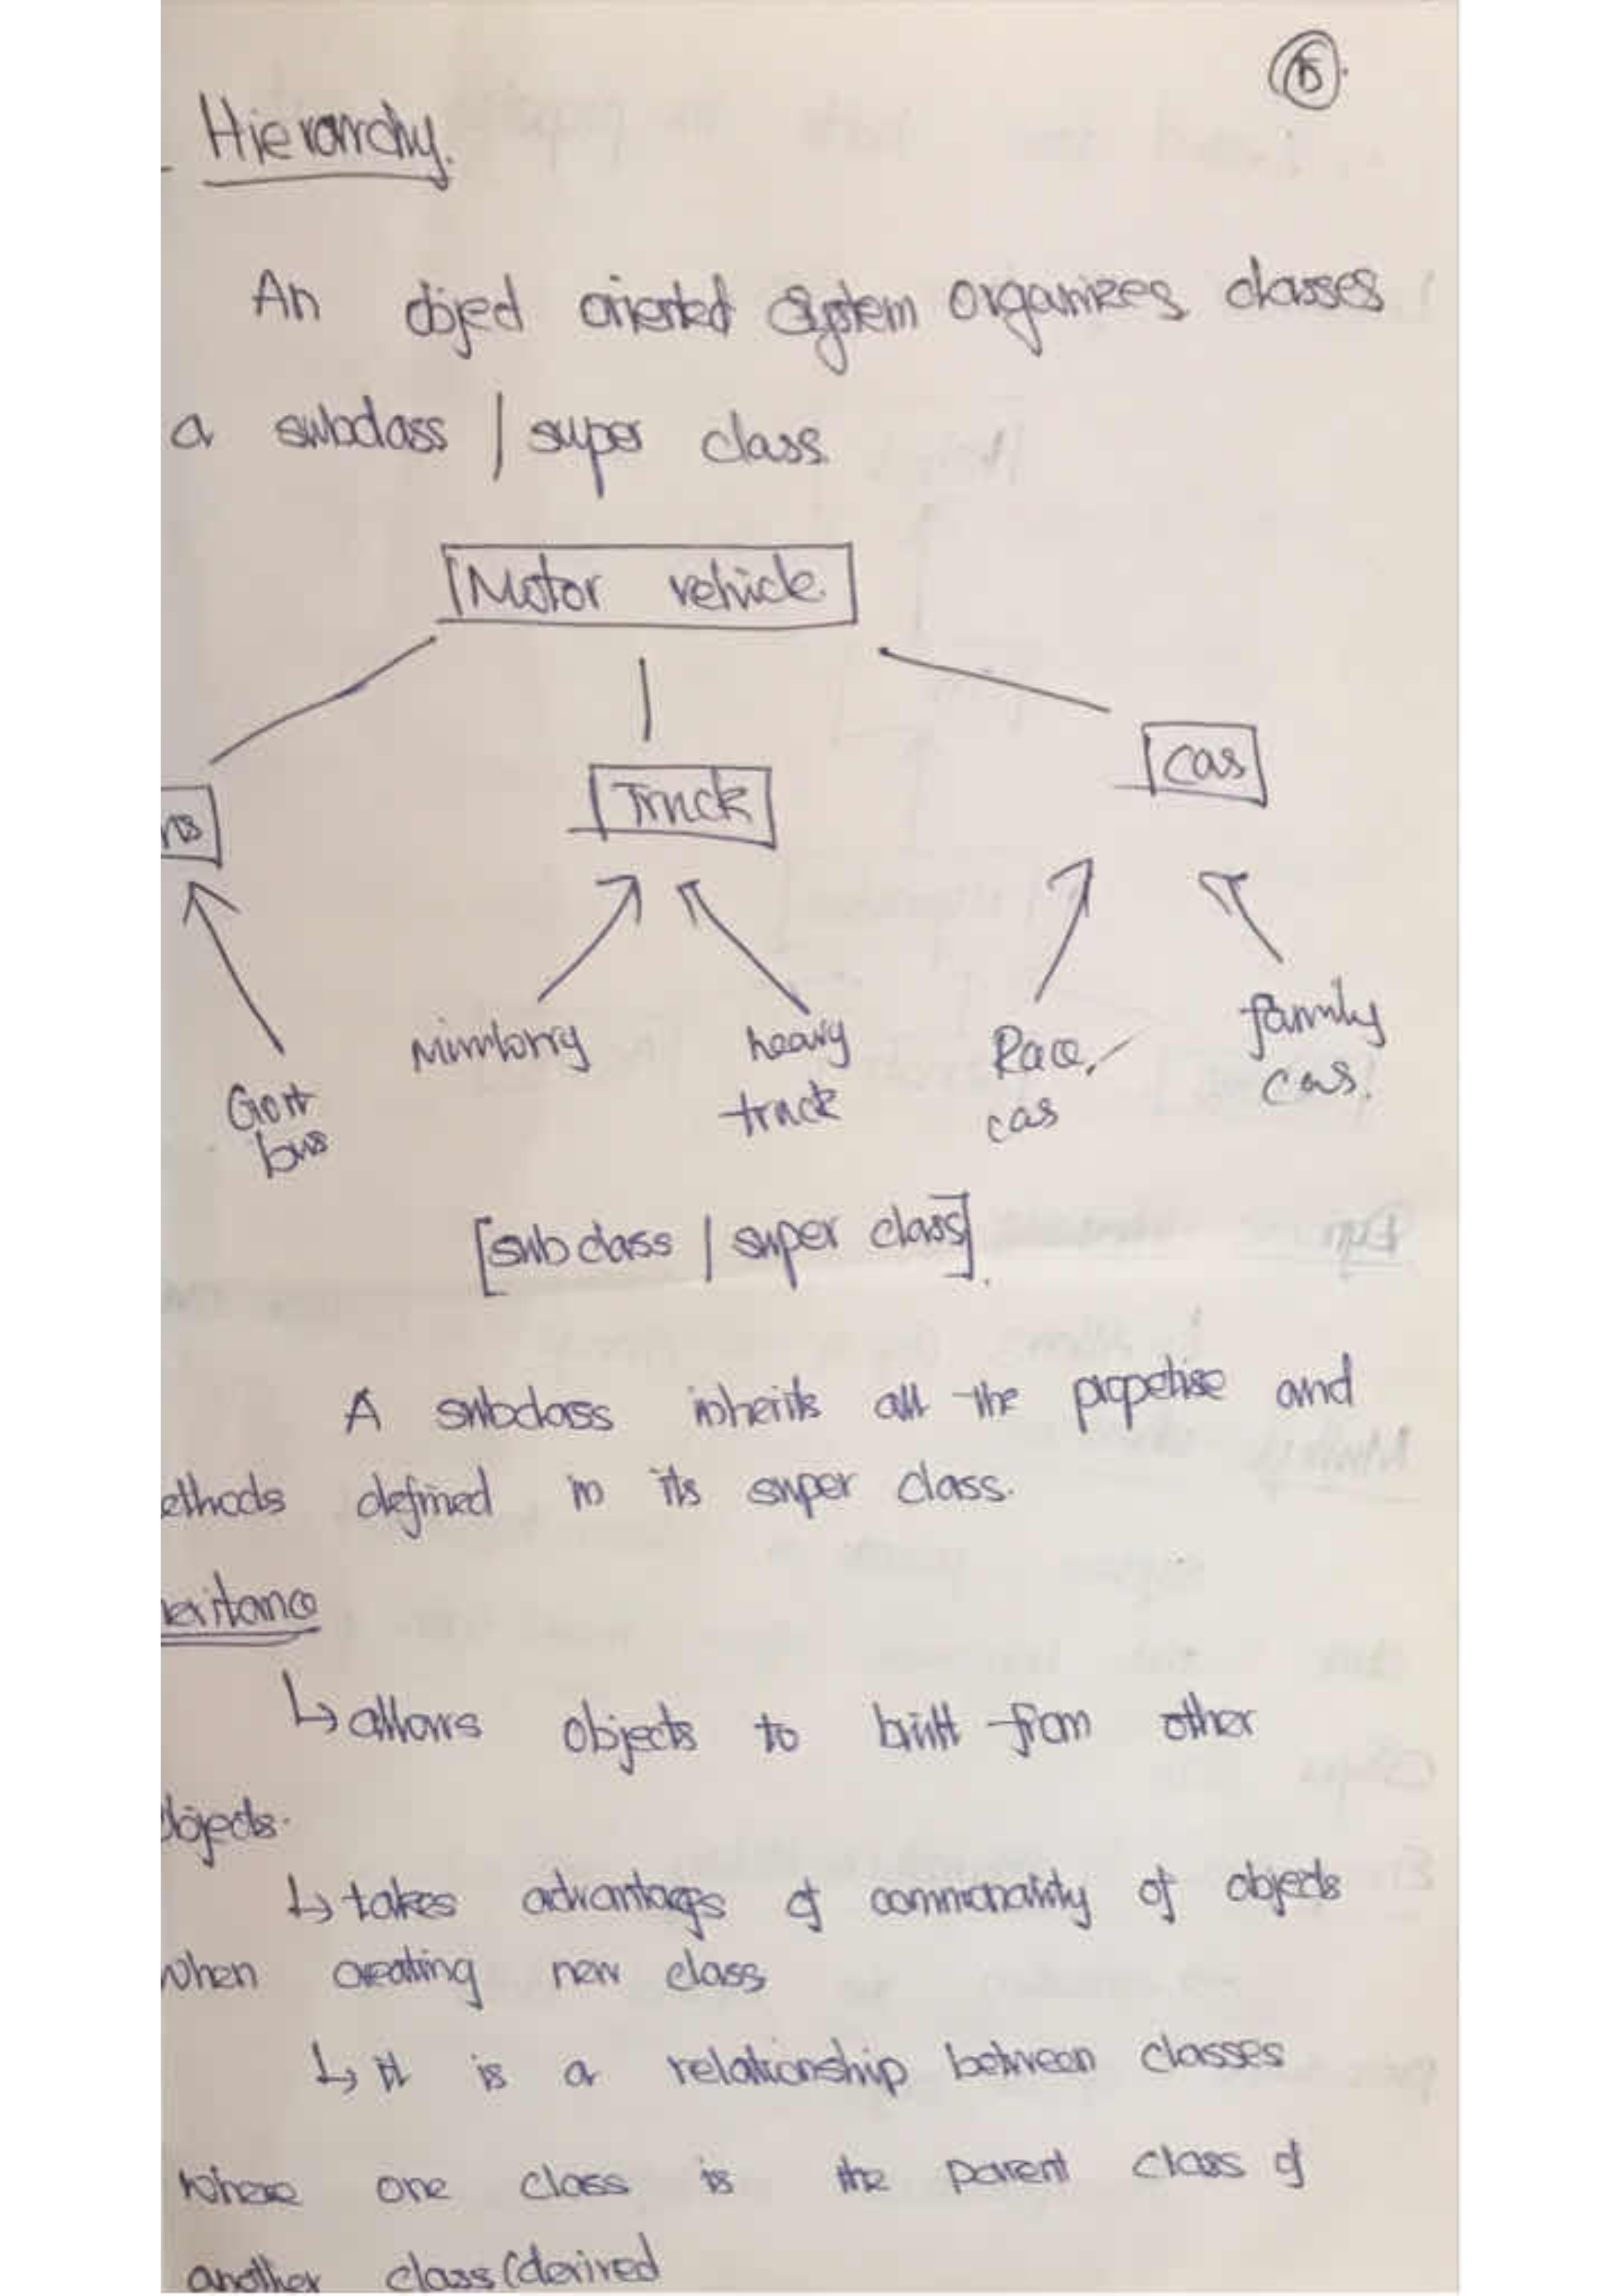 Hierarchy.
An object oriented system organizes classes
a subclass / super class
Motor vehicle.
Truck
car
minlorry
heavy
truck
Race
car
family
car.
Govt
bus
[sub class / super class].
A subclass inherits all the propetise and
ethods defined in its super class.
eritance
↳ allows objects to built from other
bjects.
↳ takes advantages of commonality of objects
when creating new class
↳ it is a relationship between classes
where one class is the parent class of
another class (derived